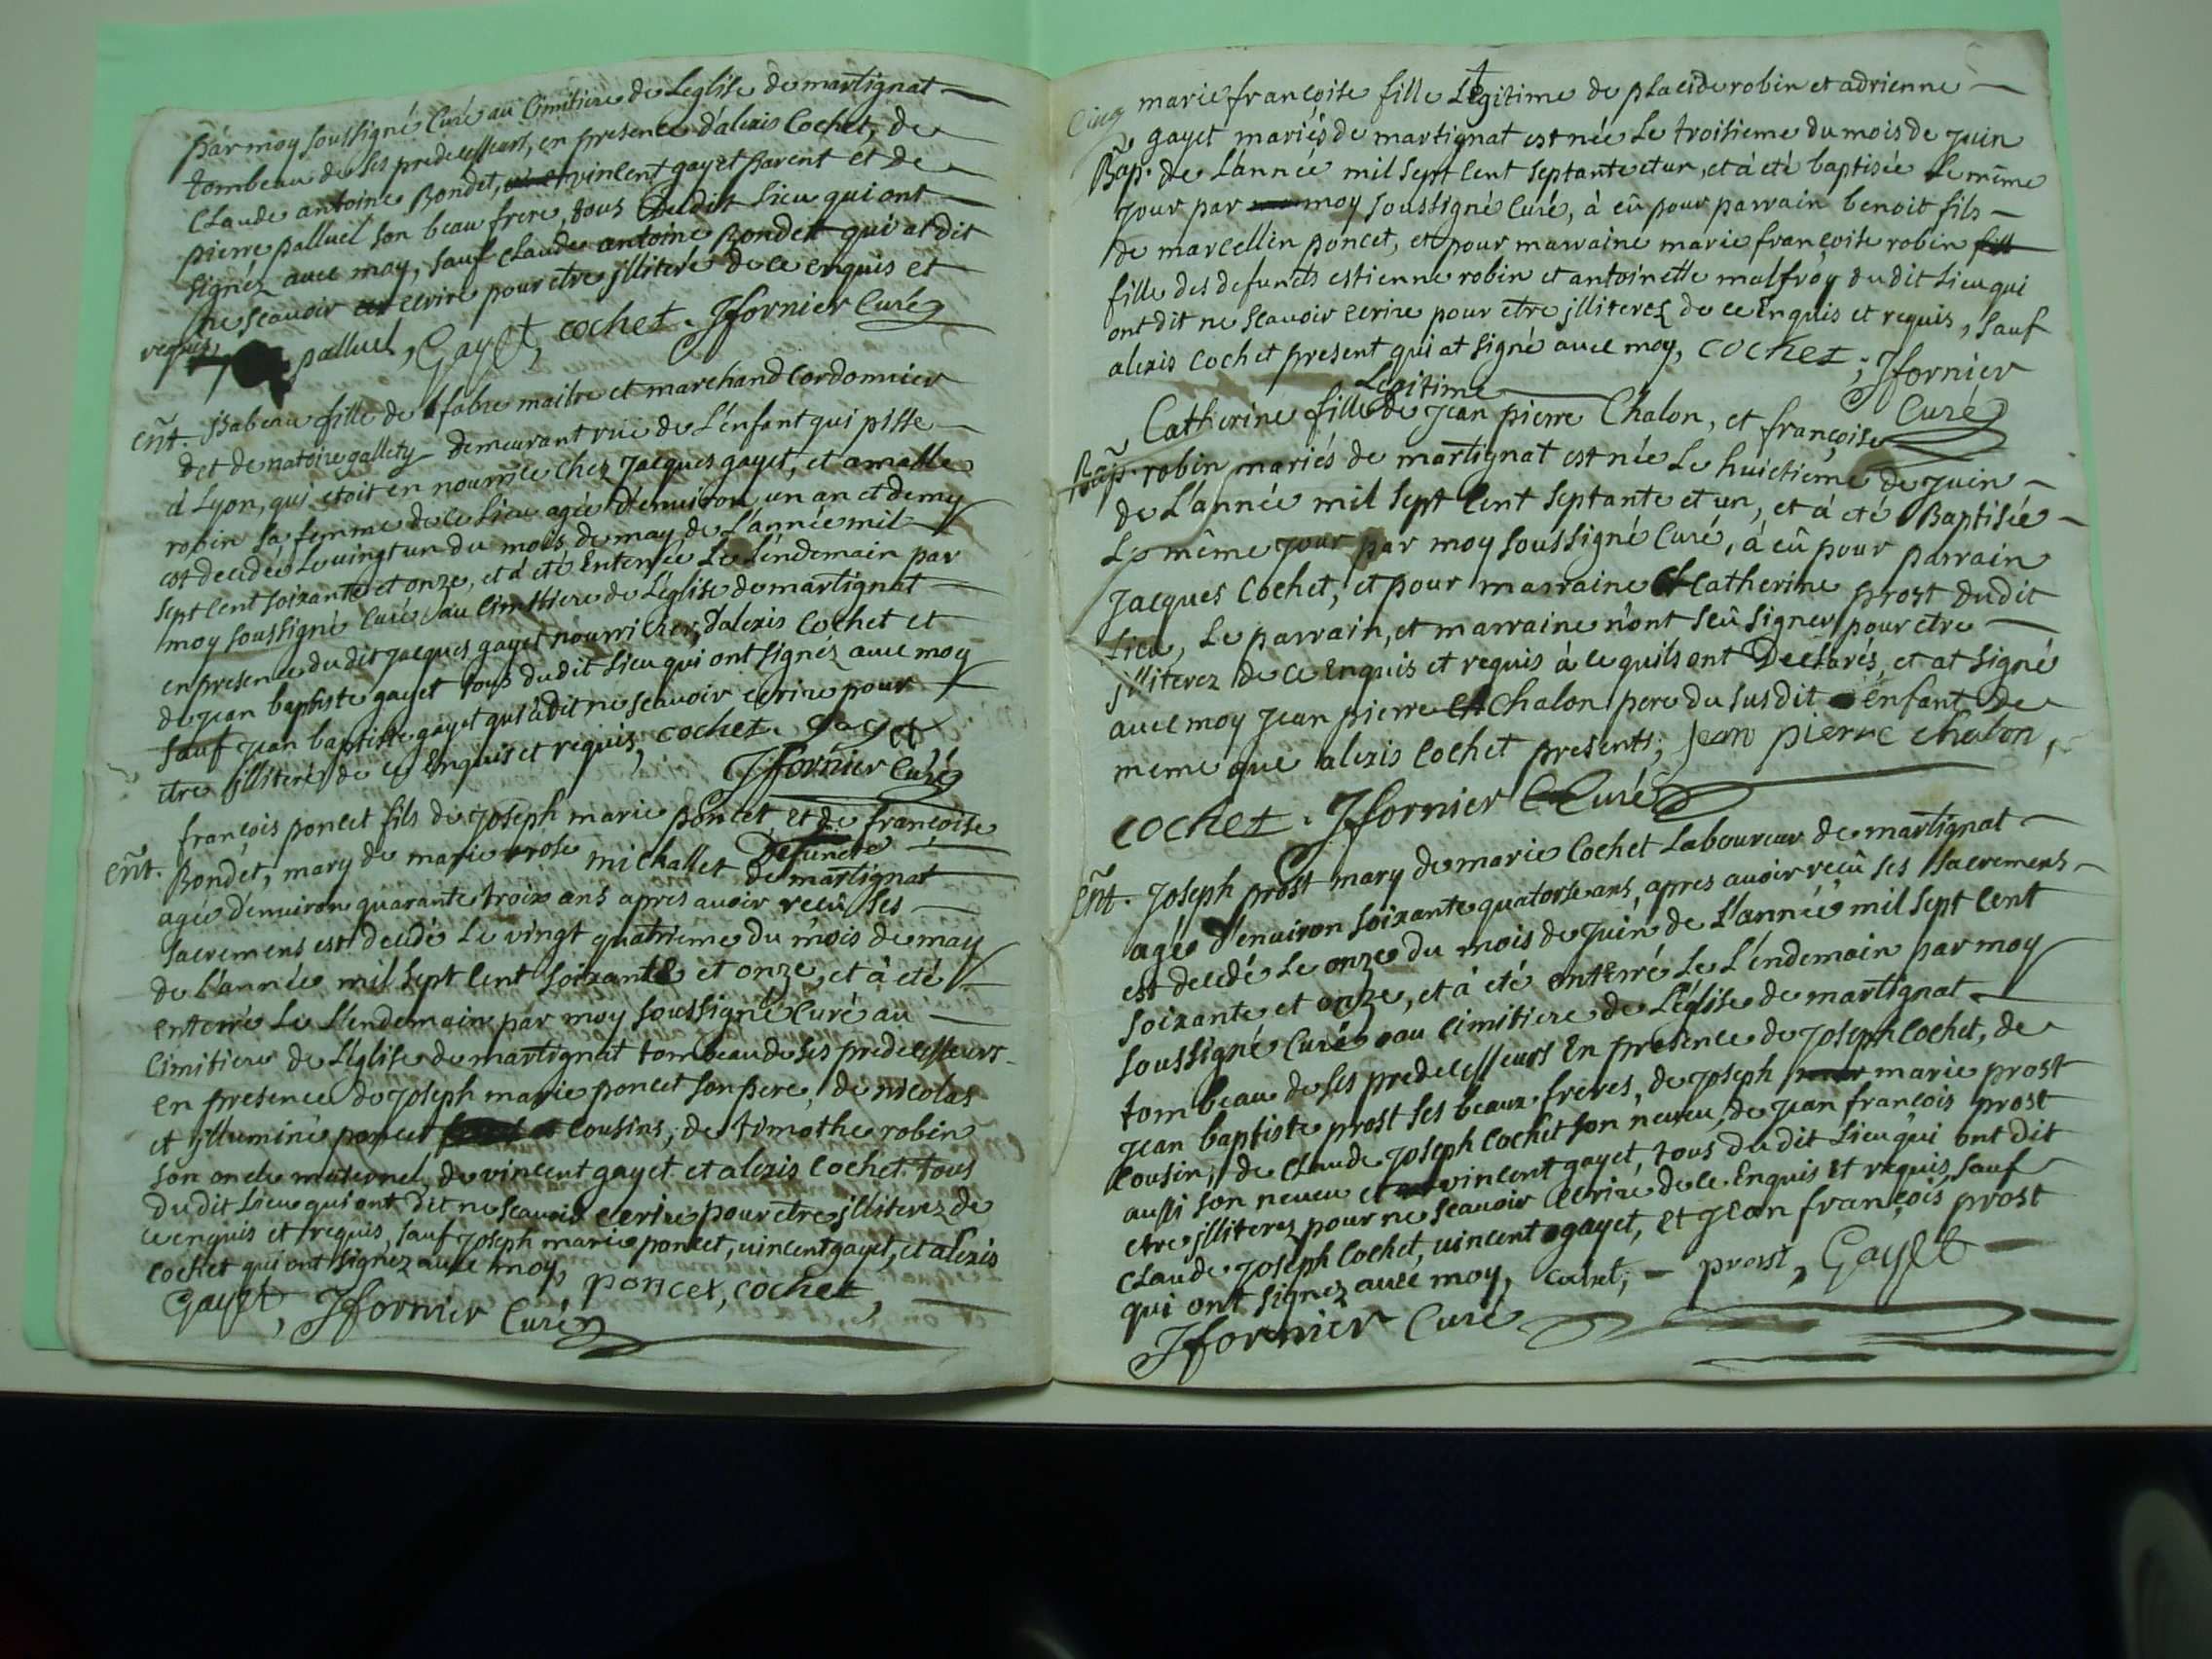 par moy soussigné Curé au Cimitiere de L'eglise de martignat
tombeau de ses predecesseurs, en presence d'alexis Cochet, de
Claude antoine Bondet, vincent gayet parent et de
pierre palluel son beau frere, tous dudit Lieu qui ont
signéz avec moy, sauf Claude antoine Bondet qui at dit
ne scavoir ecrire pour etre jllitere de ce enquis et
requis, palluel, Gayet, cochet. Jfornier Curé
ent. jsabeau fille de fabre maitre et marchand Cordonnier
det de gallety demeurant rue de L'enfant qui pisse
à Lyon, qui étoit en nourrice chez Jacques gayet, et
robin sa femme de ce Lieu agée d'environ un an et demy
est decedée Le vingt un du mois de may de L'année mil
sept cent soixante et onze, et à eté Enterrée Le Lendemain par
moy soussigné Curé au Cimitiere de L'eglise de martignat
en presence du dit jacques gayet nourricier, d'alexis Cochet et
de jean baptiste gayet tous dudit Lieu qui ont signéz avec moy
sauf jean baptiste gayet qui à dit ne scavoir ecrire pour
etre jlliteré de ce Enquis et requis, cochet. gayet
Jfornier Curé
françois poncet fils de joseph marie poncet, et de françoise
Defuncte
ent. Bondet, mary de marie rose michallet de martignat
agée d'environ quarante trois ans apres avoir reçû ses
sacremens est decedé Le vingt quatrieme du mois de may
de L'année mil sept cent soixante et onze, et à eté
enterré Le Lendemain par moy soussigné Curé au
Cimitiere de L'eglise de martignat tombeau de ses predecesseurs
en presence de joseph marie poncet son pere, de nicolas
et jlluminé poncet cousins, de timothe robin
son oncle maternel, de vincent gayet et alexis Cochet tous
dudit Lieu qui ont dit ne scavoir ecrire pour etre jlliterez de
ce enquis et requis, sauf joseph marie poncet, vincent gayet, et alexis
Cochet qui ont signez avec moy, poncet, cochet,
Gayet, Jfornier Curé
Cinq marie françoise fille Légitime de placide robin et adrienne
gayet mariés de martignat est née Le troisieme du mois de juin
Bap. de L'année mil sept cent septante et un, et à eté baptisée Le même
jour par moy soussigné Curé, à eû pour parrain benoit fils
de marcellin poncet, et pour marraine marie françoise robin fill
fille des defuncts estienne robin et antoinette malfroy dudit Lieu qui
ont dit ne scavoir ecrire pour etre jlliterez de ce Enquis et requis, sauf
alexis cochet present qui at signé avec moy, cochet; Jfornier
Curé
Légitime
Catherine fille de jean pierre Chalon, et françoise
Bap. robin mariés de martignat est née Le huictieme de juin
de L'année mil sept cent septante et un, et à eté Baptisée
Le même jour par moy soussigné Curé, à eû pour parrain
jacques Cochet, et pour marraine Catherine prost dudit
Lieu, Le parrain, et marraine n'ont seû signer pour etre
jlliterez de ce Enquis et requis à ce quils ont Declarés, et at signé
avec moy jean pierre Chalon pere du susdit enfant de
meme que alexis Cochet presents; jean pierre chalon,
cochet. Jfornier Curé
ent. joseph prost mary de marie Cochet Laboureur de martignat
agée d'environ soixante quatorse ans, apres avoir reçû ses sacremens
est decedé Le onze du mois de juin de L'année mil sept cent
soixante et onze, et à eté enterré Le L'endemain par moy
soussigné Curé au Cimitiere de L'eglise de martignat
tombeau de ses predecesseurs En presence de joseph Cochet, de
jean baptiste prost ses beaux freres, de joseph marie prost
cousin, de Claude joseph Cochet son neveu, de jean françois prost
aussi son neveu et vincent gayet, tous dudit Lieu qui ont dit
etre jlliterez pour ne scavoir ecrire de ce Enquis et requis, sauf
Claude joseph Cochet, vincent gayet, et jean françois prost
qui ont signez avec moy, cochet, prost, Gayet
Jfornier Curé